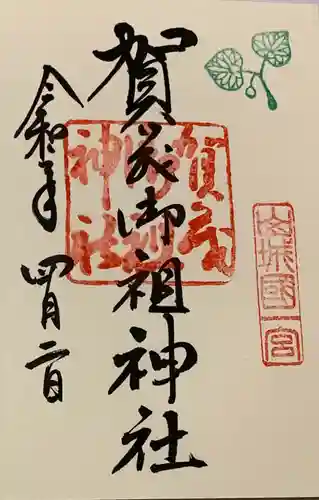 山城國一宮
賀茂御祖神社
賀茂御祖神社
令和年四月二日